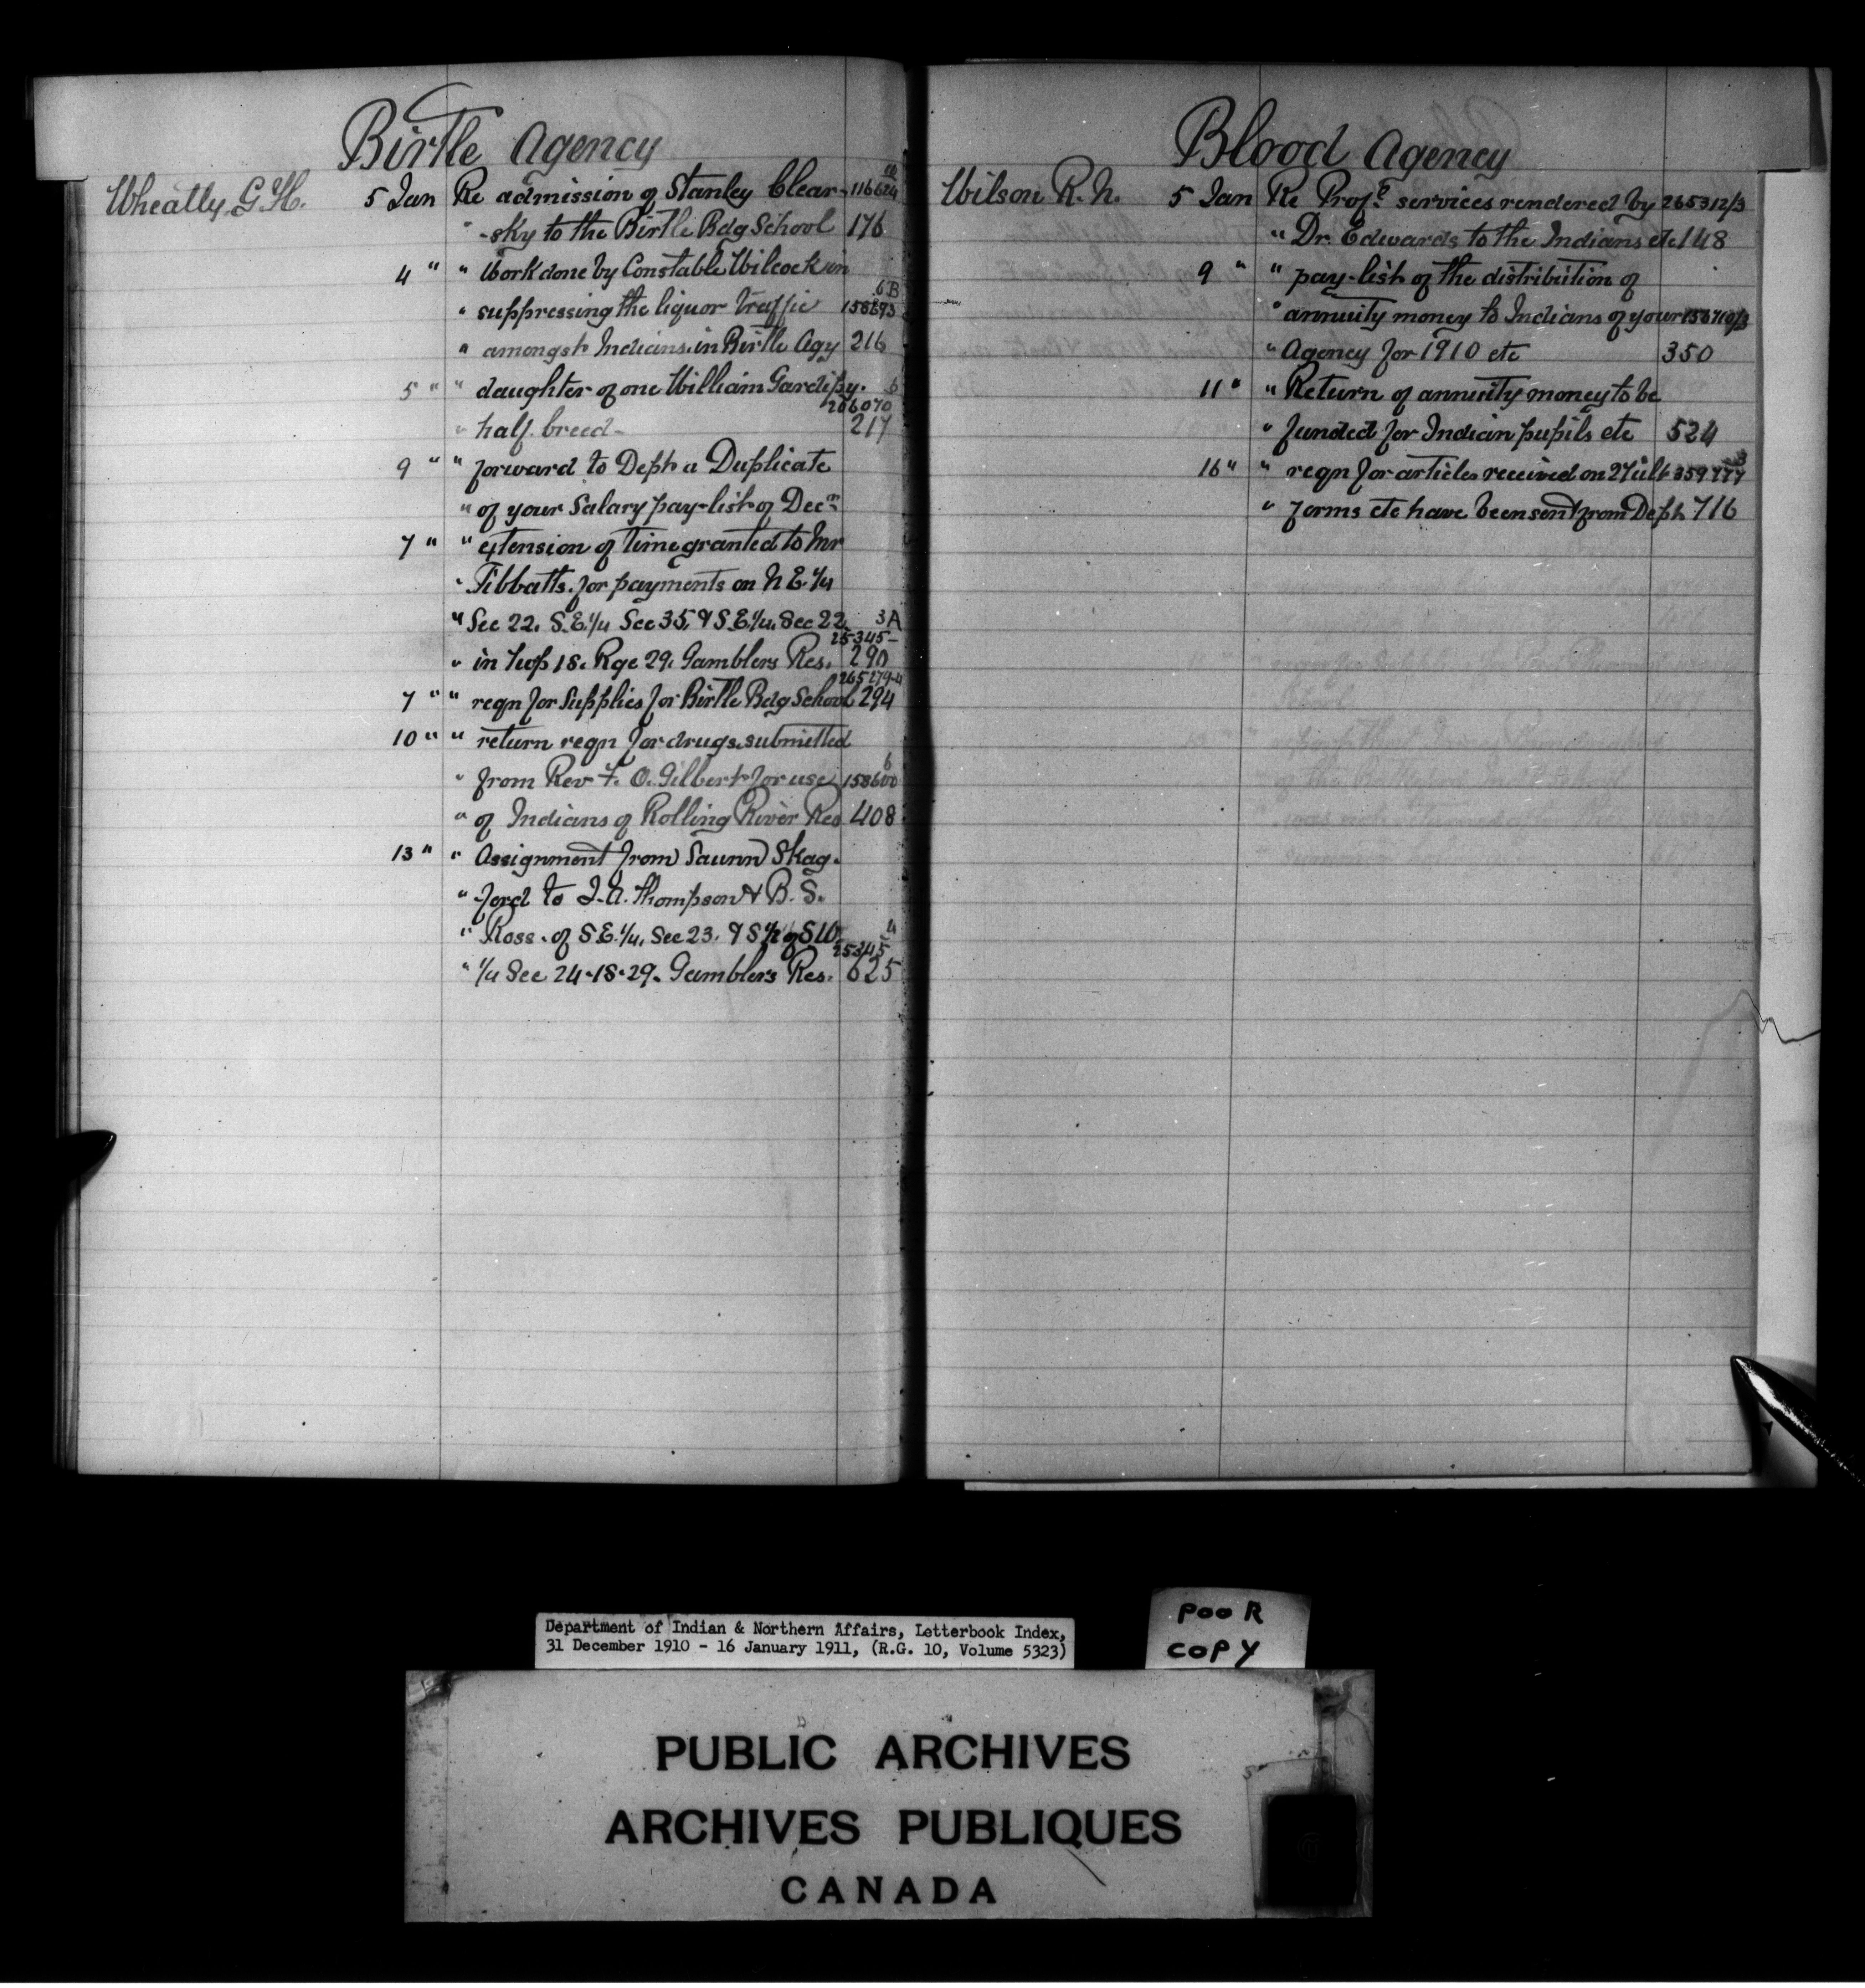 Birtle Agency
Wheatly. G. H. 5 Jan Re admission of Stanley Clear- 116624
" -sky to the Birtle Bdg School 176
4 " " Work done by Constable Wilcock in
6B
" suppressing the liquor traffic 158693
" amongst Indians in Birtle Agy 216
5 " " daughter of one William Gardipy. 6
266070
" half breed- 217
9 " " forward to Dept a Duplicate
" of your Salary pay-list of Decr
7 " " extension of time granted to Mr
" Tibbatts. for payments on N E. 1/4
" Sec 22. S.E. 1/4 Sec 35. & S.E. 1/4. Sec 22. 3A
25345-
" in Twp 18. Rge 29. Gamblers Res. 290
265279-4
7 " " reqn for Supplies for Birtle Bdg School 294
10 " " return reqn for drugs submitted
6
" from Rev F. O. Gilbert for use 158600
" of Indians of Rolling River Res 408
13 " " Assignment from Saunn Skag-
" -ford to J. A. Thompson & B. S.
" Ross. of S.E. 1/4. Sec 23. & S 1/2 of S W. 4
25345
" 1/4 Sec 24-18-29. Gamblers Res. 625
Blood Agency
Wilson R. N. 5 Jan Re Profl services rendered by 265312/3
" Dr. Edwards to the Indians etc 148
9 " " pay-list of the distribution of
" annuity money to Indians of your 156710/3
" Agency for 1910 etc 350
11 " " Return of annuity money to be
" funded for Indian pupils etc 524
3
16 " " reqn for articles received on 27 ult 359777
" forms etc have been sent from Dept 716
Department of Indian & Northern Affairs, Letterbook Index,
31 December 1910 - 16 January 1911, (R.G. 10, Volume 5323)
POOR
COPY
PUBLIC ARCHIVES
ARCHIVES PUBLIQUES
CANADA